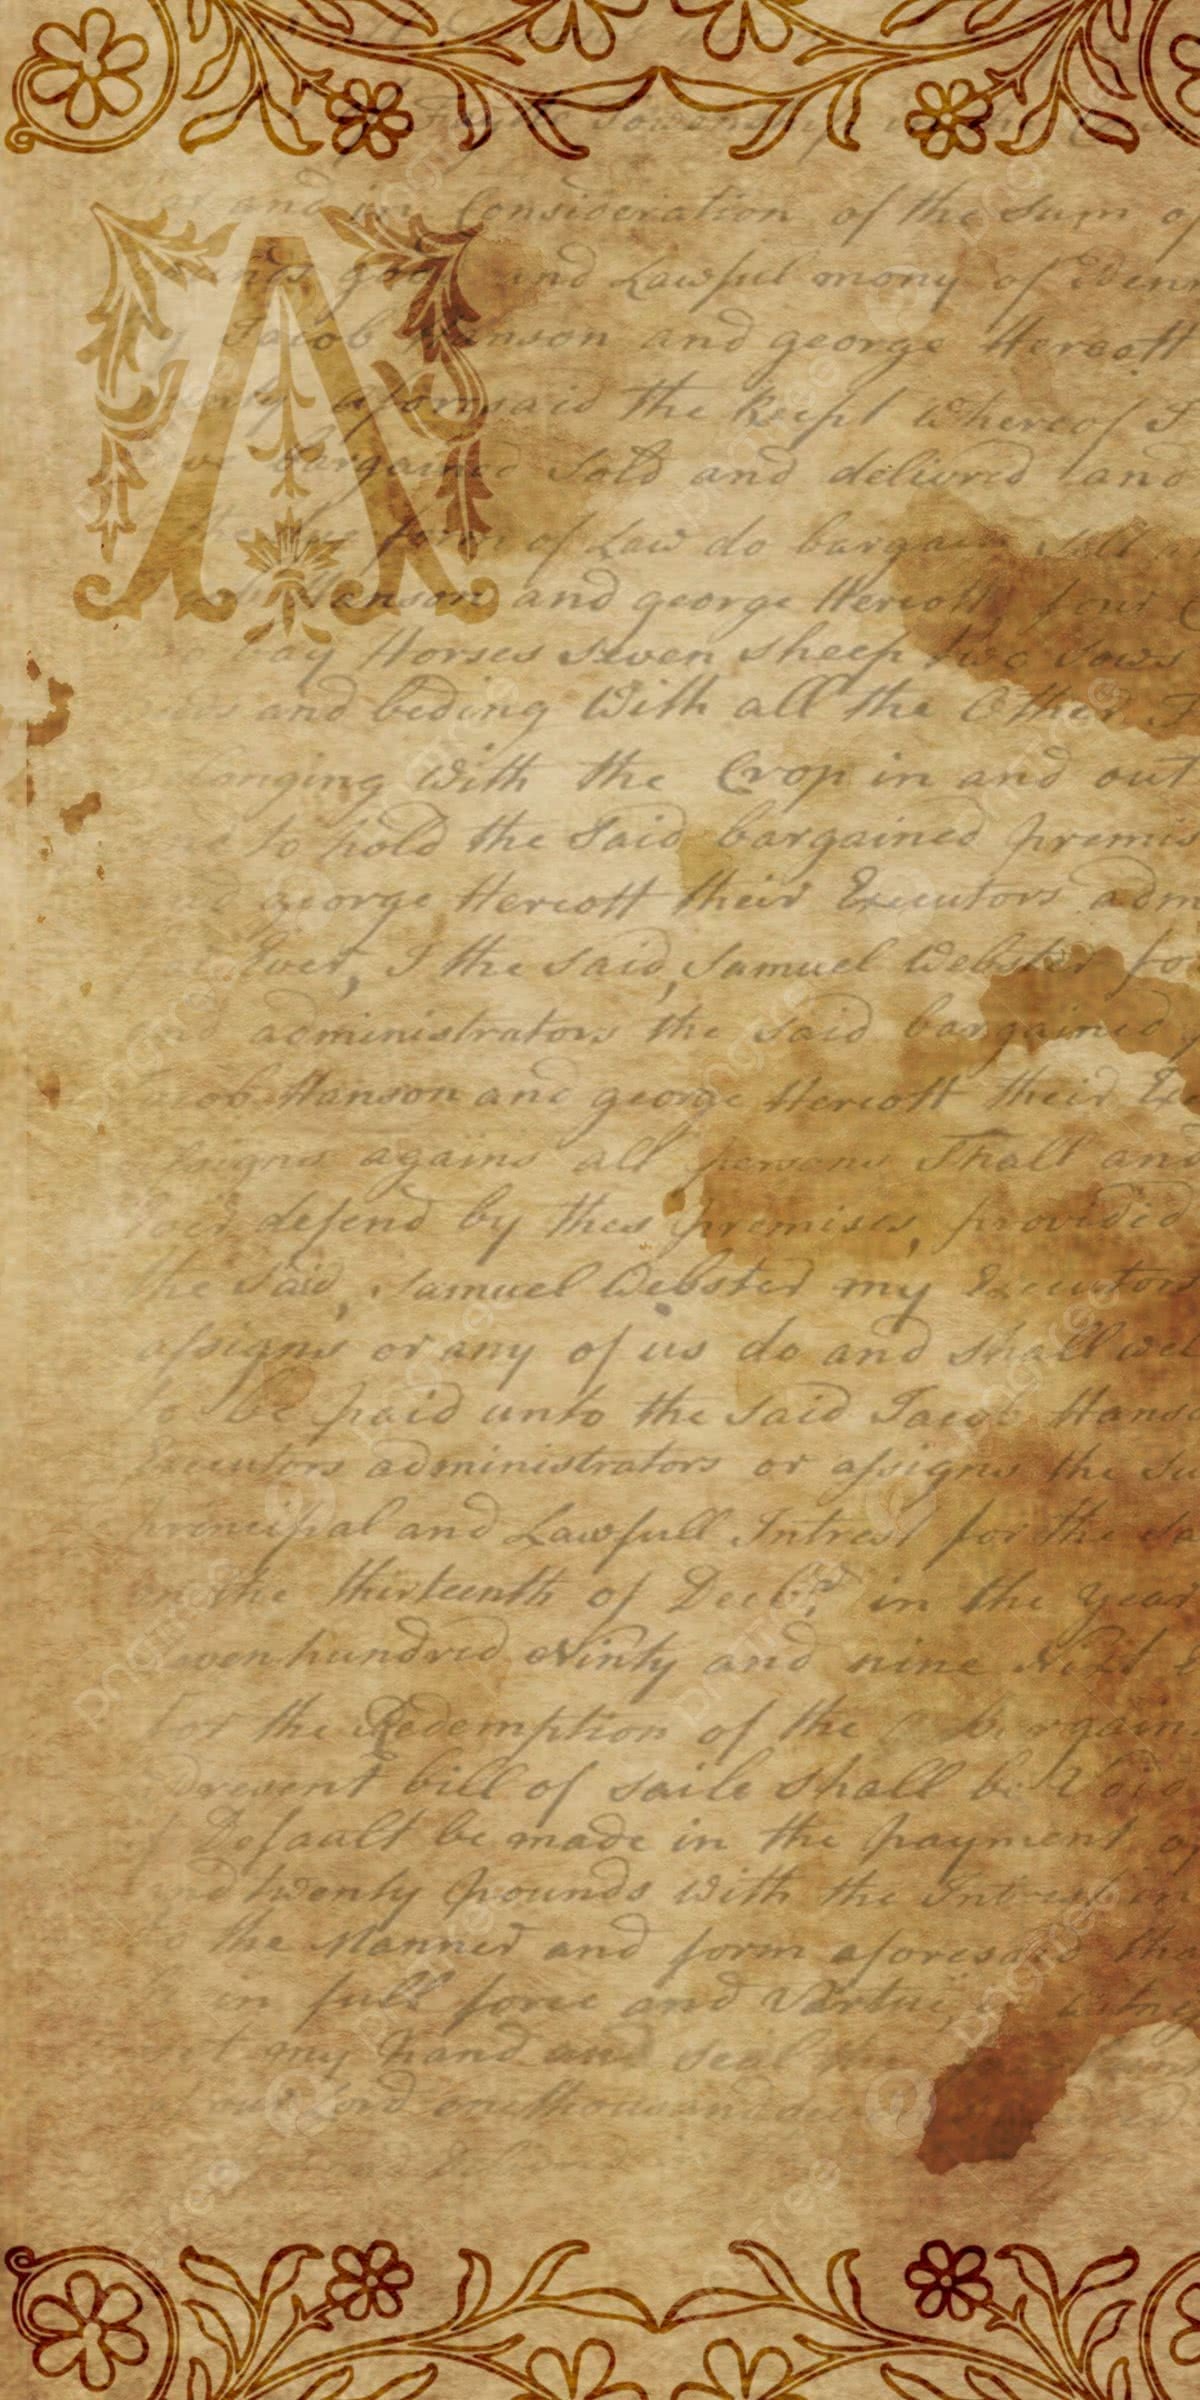 and in Consideration of the Sum of
good and Lawful mony of
Jacob Hanson and george Hercott
aforesaid the Recept whereof I
bargained Sold and delivred and
the due form of Law do bargain Sell
Hanson and george Hercott four
bay Horses seven sheep two sows
and beding With all the Other
longing With the Crop in and out
to hold the Said bargained premis
george Hercott their Executors adm
Ever, I the Said, Samuel Webster fo
and administrators the said bargained
Jacob Hanson and george Hercott their Ex
assigns agains all persons Shall and
defend by thes premises, provided
the Said, Samuel Webster my Executors
assigns or any of us do and Shall wel
to be paid unto the said Jacob Hans
Executors administrators or assigns the Su
principal and Lawfull Intrest for the Sa
on the thirteenth of Decbr in the year
seven hundred Ninty and nine Next
for the Redemption of the bargain
present bill of saile shall be Void
if Default be made in the payment of
and twenty pounds With the Intrest in
to the Manner and form aforesaid tha
in full force and Vertue,
set my hand and seal the
of our Lord one thousand
A